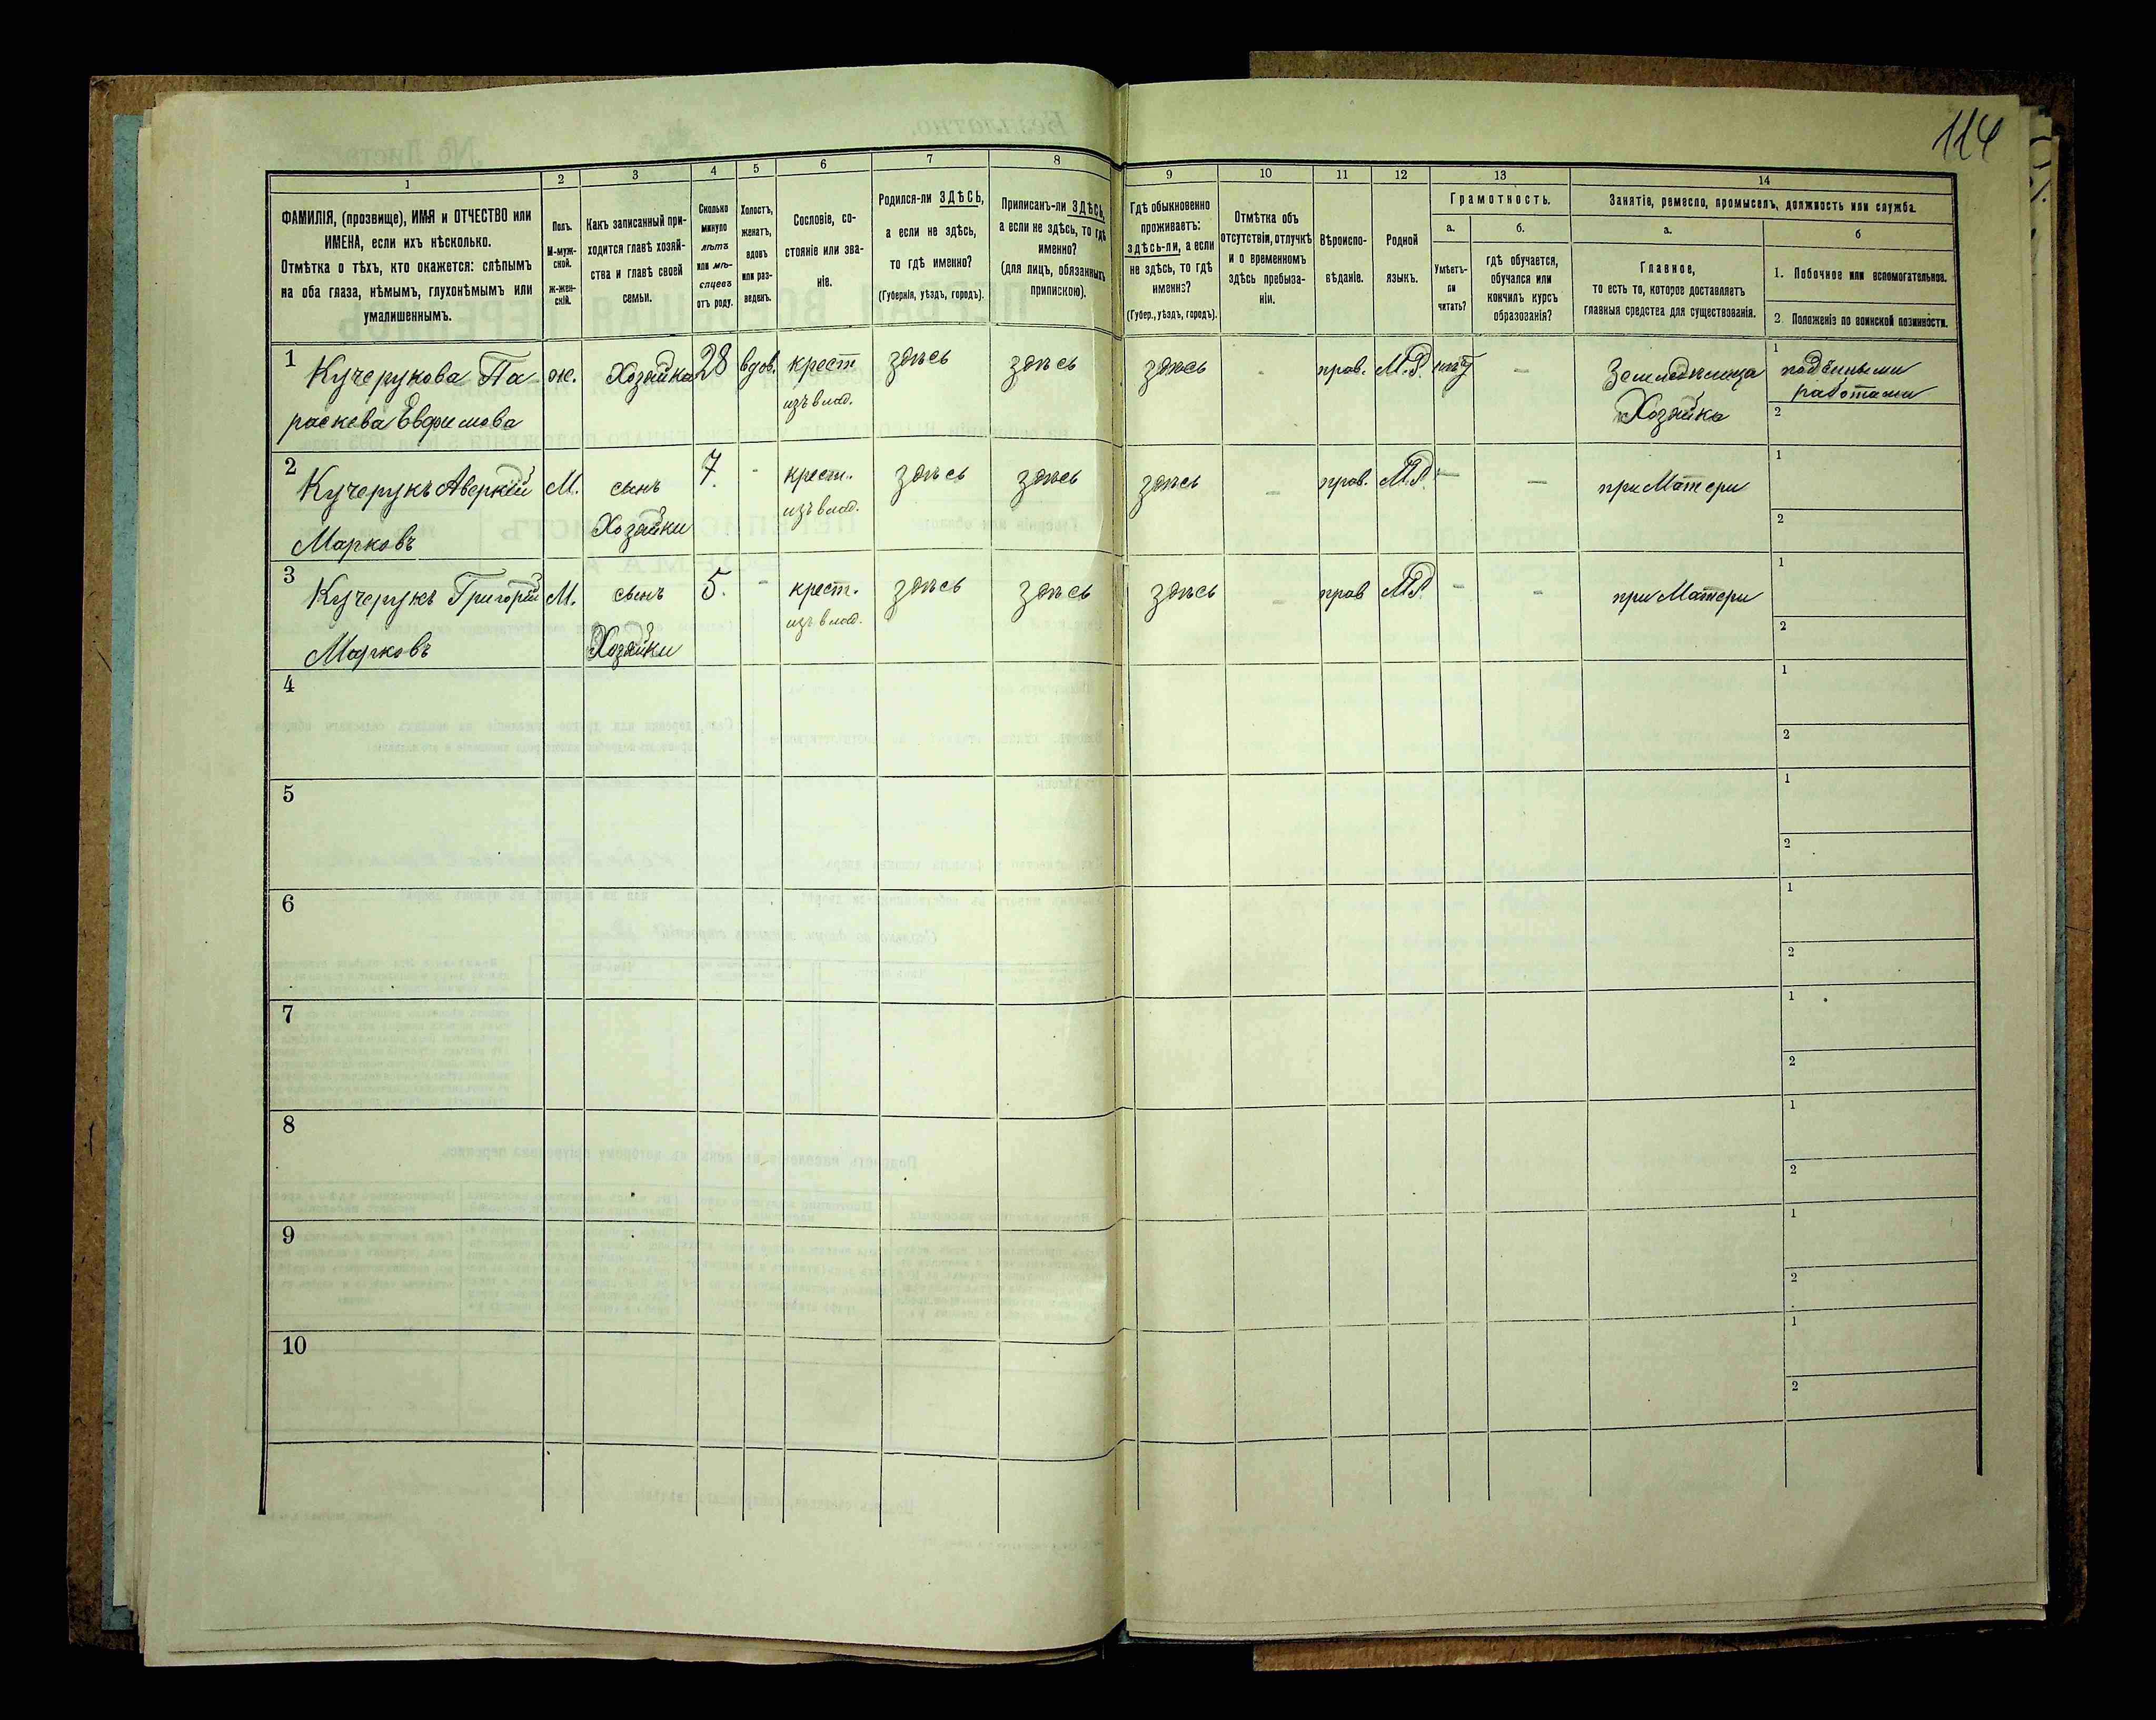 114
1
2
3
4
5
6
7
8
9
10
11
12
13
14
ФАМИЛІЯ, (прозвище), ИМЯ и ОТЧЕСТВО или
ИМЕНА, если ихъ нѣсколько.
Отмѣтка о тѣхъ, кто окажется: слѣпымъ
на оба глаза, нѣмымъ, глухонѣмымъ или
умалишеннымъ.
Полъ.
М-муж-
ской.
ж-жен-
скій.
Какъ записанный при-
ходится главѣ хозяй-
ства и главѣ своей
семьи.
Сколько
минуло
лѣтъ
или мѣ-
сяцевъ
отъ роду.
Холостъ,
женатъ,
вдовъ
или раз-
веденъ.
Сословіе, со-
стояніе или зва-
ніе.
Родился-ли ЗДѢСЬ,
а если не здѣсь,
то гдѣ именно?
(Губернія, уѣздъ, городъ).
Приписанъ-ли ЗДѢСЬ,
а если не здѣсь, то гдѣ
именно?
(для лицъ, обязанныхъ
припискою).
Гдѣ обыкновенно
проживаетъ:
здѣсь-ли, а если
не здѣсь, то гдѣ
именно?
(Губер., уѣздъ, городъ).
Отмѣтка объ
отсутствіи, отлучкѣ
и о временномъ
здѣсь пребыва-
ніи.
Вѣроиспо-
вѣданіе.
Родной
языкъ.
Грамотность.
а.
Умѣетъ-
ли
читать?
б.
гдѣ обучается,
обучался или
кончилъ курсъ
образованія?
Занятіе, ремесло, промыселъ, должность или служба.
а.
Главное,
то есть то, которое доставляетъ
главныя средства для существованія.
б
1. Побочное или вспомогательное.
2. Положеніе по воинской повинности.
1 Кучерукова Па-
раскева Евфимова
ж.
Хозяйка
28
вдов.
крест
изъ влад.
здѣсь
здѣсь
здѣсь
-
прав.
М.Р.
нѣт
-
Земледѣлица
Хозяйка
1 подёнными
работами
2
2 Кучерукъ Аверкій
Марковъ
М.
сынъ
Хозяйки
7.
-
крест.
изъ влад.
здѣсь
здѣсь
здѣсь
-
прав.
М.Р.
-
-
при Матери
1
2
3 Кучерукъ Григорій
Марковъ
М.
сынъ
Хозяйки
5.
-
крест.
изъ влад.
здѣсь
здѣсь
здѣсь
-
прав
М.Р.
-
-
при Матери
1
2
4
1
2
5
1
2
6
1
2
7
1
2
8
1
2
9
1
2
10
1
2